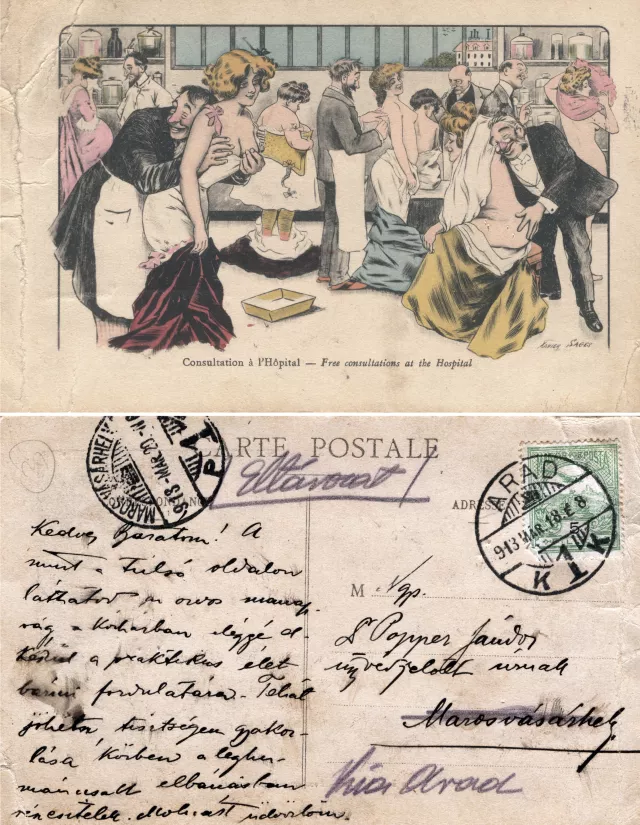 Consultation à l'Hôpital — Free consultations at the Hospital
HENRY
CARTE POSTALE
Eltávozott
ADRESSE
MAROSVÁSÁRHELY
913 MÁR 20
P
ARAD
913 MÁR 18
K 1 K
5
Kedves Barátom! A
mint a túlsó oldalon
láthatod az orvos
a kórházban eléggé
a praktikus élet
fordulatára. Tehát
jöhetsz, tisztségem gyakor-
lása közben a leghu-
mánusabb elbánásban
részesítelek. üdvözlöm
M Ngs.
Dr Popper Sándor
ügyvédjelölt úrnak
Marosvásárhely
Arad